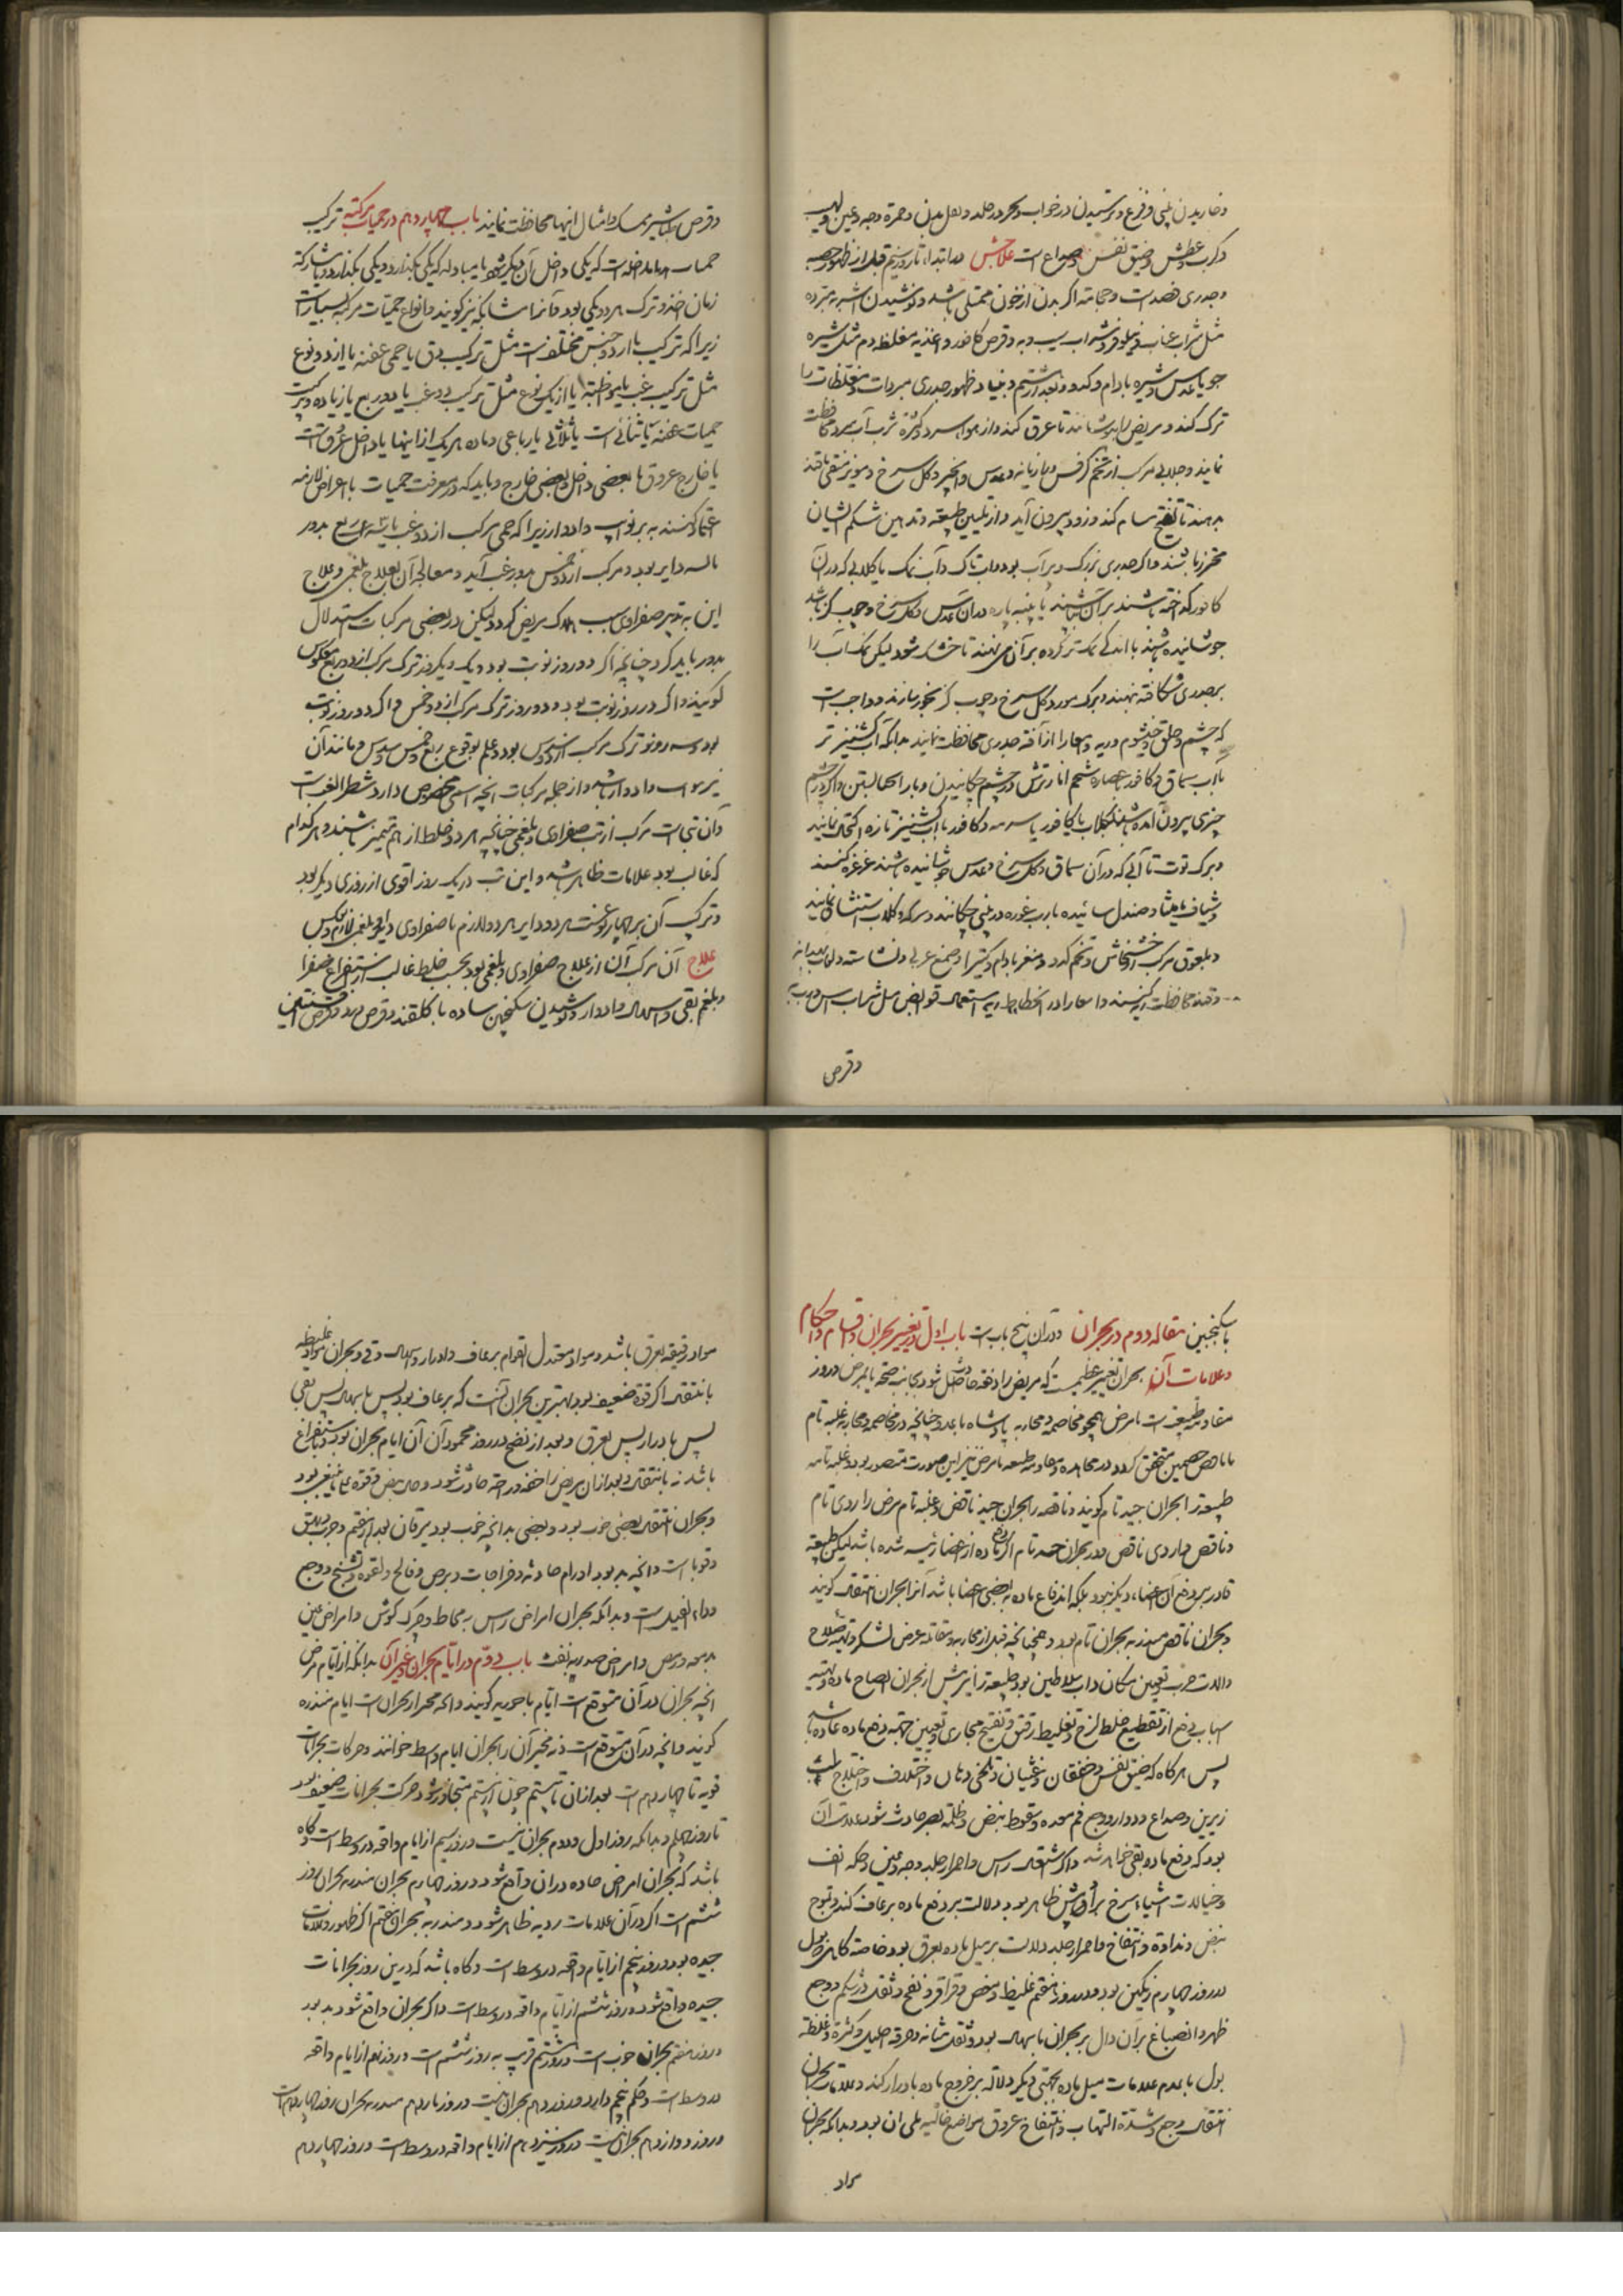 و خاریدن بینی و فزع و ترسیدن در خواب و در جلد و ثقل بدن و حمرة وجه و عین و لهیب
و کرب و عطش و ضیق نفس و صداع است علاجش در ابتدا تا روز سیم قبل از ظهور حصبه
و جدری فصد است و حجامة اگر بدن از خون ممتلی باشد و نوشیدن اشربه مبرده
مثل شراب عناب و نیلوفر و شراب سیب و به و قرص کافور و اغذیه مغلظه دم مثل شیره
جو یا عدس و شیره بادام و کدو و بعد از سیم و بنیاد ظهور جدری مبردات و مغلظات را
ترک کند و مریض را بپوشانند تا عرق کند و از هوا سرد و کثرة شرب آب سرد محافظت
نمایند و جلابی مرکب از تخم کرفس و بازیانه و عدس و انجیر و کل سرخ و مویز منقی با قند
بدهند تا تفتیح مسام کند و زود بیرون آید و از تلیین طبیعه و تدهین شکم ایشان
محترز باشند و اکر جدری بزرک و پر آب بود و آب تاک و آب نمک یا کلابی که در آن
کافور کداخته باشند بر آن باشند یا پنبه پاره در آن عدس و کل سرخ و چوب کز باشد
جوشانیده باشند با اندکی نمک تر کرده بر آن می نهند تا خشک شود لیکن نمک آب را
بر جدری شکافته ننهند و برک مورد و کل سرخ و چوب کز بخور سازند و واجب است
که چشم و حلق و خیشوم و ریه و امعا را از آفة جدری محافظت نمایند بدانکه آب کشنیز تر
با آب سماق و کافور عصاره شحم انار ترش در چشم چکانیدن و اکر در چشم
چیزی بیرون آمده باشد بکلاب یا کافور یا سرمه و کافور با آب کشنیز تازه اکتحال نمایند
و برک توت تا آبی که در آن سماق و کل سرخ و عدس جوشانیده باشند غرغره کنند
و شیاف مامیثا و صندل سائیده با رب غوره در بینی چکانند و سرکه و کلاب استنشاق نمایند
و بلعوق مرکب از خشخاش و تخم کدو و مغز بادام و کتیرا و صمغ عربی و نشاسته و لعاب بهدانه
و قند محافظت ریه کنند و امعا را در انحطاط به استعمال قوابض مثل شراب
و قرص
و قرص طباشیر ممسک و امثال اینها محافظت نمایند باب چهاردهم در حمیات مرکبه ترکیب
حمیات یا مداخله است که یکی داخل آن دیگر شود یا مبادله که یکی بگذارد و یکی بگذارد و یا مشارکة
زمان اخذ و ترک هر دو یکی بود و آنرا مشابکه نیز کویند و انواع حمیات مرکبه بسیار است
زیرا که ترکیب یا از دو جنس مختلف است مثل ترکیب دق با حمی عفنه یا از دو نوع
مثل ترکیب غب با مواظبه یا از یک نوع مثل ترکیب دو غب یا دو ربع یا زیاده و ترکیب
حمیات عفنه یا ثنائی است یا ثلاثی یا رباعی و ماده هر یک از اینها یا داخل عروق است
یا خارج عروق یا بعضی داخل و بعضی خارج و باید که در معرفت حمیات با اعراض لازمه
اعتماد کنند نه بر نوایب و ادوار زیرا که حمی مرکب از دو غب یا سه ربع بدور
دایر بود و مرکب از دو خمس بدور غب آید و معالجه آن بعلاج بلغمی و علاج
این به تدبیر صفراوی سبب هلاک مریض کردد و لیکن در بعضی مرکبات استدلال
بدور باید کرد چنانچه اکر دو روز نوبت بود و یک روز ترک مرکب از دو ربع معکوس
کویند و اکر در روز نوبت بود و دو روز ترک مرکب از دو خمس و اکر دو روز نوبت
بود و سه روز ترک مرکب از سدس بود و علم بوقوع ربع و خمس و سدس و مانند آن
و ادوار باشد و از جمله مرکبات انچه اسمی مخصوص دارد شطر الغب است
و آن تبی است مرکب از تب صفراوی و بلغمی چنانچه هر دو خلط از هم متمیز باشند و هر کدام
که غالب بود علامات ظاهر باشد و این تب در یک روز اقوی از روزی دیگر بود
و ترکیب آن بر چهار نوعست هر دو دایر هر دو لازم یا صفراوی دایر و بلغمی لازم و عکس
علاج آن مرکب آن از علاج صفراوی و بلغمی بود بحسب خلط غالب استفراغ صفرا
و بلغم بقی و اسهال و ادرار و نوشیدن سکنجبین ساده با کلقند و قرص ورد و قرص افسنتین
با سکنجبین مقاله دوم در بحران و در آن پنج باب است باب اول در تفسیر بحران و اقسام و احکام
و علامات آن بحران تغییر عظیمیست که مریض را دفعة حادث شود بجانب صحة یا مرض و روز
مقاومة طبیعة است با مرض همچو مخاصمه و محاربه پادشاه با عدو چنانچه در مخاصمه و محاربه غلبه تام
یا ناقص خصمین متحقق کردد در مجاهده و مقاومة طبیعه با مرض نیز این صورت متصور بود و غلبه تامه
طبیعة را بحران جید تام کویند و ناقصه را بحران جید ناقص و غلبه تام مرض را ردی تام
و ناقص را ردی ناقص و در بحران جید تام اکر دفع ماده از اعضا رئیسه شده باشد لیکن طبیعه
قادر بر دفع آن اعضاء دیگر نبود بلکه اندفاع ماده به بعضی اعضا باشد آنرا بحران انتقال کویند
و بحران ناقص منذر به بحران تام بود و همچنانچه قبل از محاربه و مقاتله عرض لشکر و تهیه سلاح
و آلات حرب و تعیین مکان داب سلاطین بود طبیعة را نیز پیش از بحران انضاج ماده و تهیه
اسباب دفع از تقطیع خلط لزج و تغلیظ رقیق و تفتیح مجاری و تعیین جهة دفع ماده عادة باشد
پس هر کاه که ضیق نفس و خفقان و غثیان و تلخی دهان و اختلاف و اختلاج لب
زیرین و صداع و دوار و وجع فم معده و سقوط نبض و ظلمة بصر حادث شود علامت آن
بود که دفع ماده بقی خواهد شد و اکر اشتعال راس و احمرار جلد و وجه و عین و حکه انف
و خیالات اشیاء سرخ برابر چشم ظاهر بود دلالت بر دفع ماده برعاف کند و تموج
نبض و نداوة و انتفاخ و احمرار جلد دلالت بر میل ماده بعرق بود خاصه کاهی که بول
در روز چهارم رنگین بود و در روز هفتم غلیظ و مغص و قراقر و نفخ و ثقل در شکم و وجع
ظهر و انصباغ براز دال بر بحران باسهال بود و ثقل مثانه و حرقة احلیل و کثرة و غلظة
بول با عدم علامات میل ماده بجهتی دیگر دلالة بر خروج ماده بادرار کند و علامات بحران
انتقال وجع و شدة التهاب و انتفاخ عروق مواضع خالیه یلی آن بود و بدانکه بحران
مواد
مواد رقیقه بعرق باشد و مواد معتدل القوام برعاف و ادرار و اسهال و قی و بحران مواد غلیظه
بانتقال اکر قوة ضعیف بود بهترین بحران آنست که برعاف بود پس باسهال پس بقی
پس بادرار پس بعرق و بعد از نضج در روز محمود آن آن ایام بحران بود و باستفراغ
باشد نه بانتقال و بعد از آن مریض را خفة و راحة حادث شود و حال نبض و قوة علی ما ینبغی بود
و بحران انتقال بعضی خوب بود و بعضی بد انچه خوب بود یرقان بعد از هفتم و جرب و بهق
و قوبا است و انچه بد بود اورام حادثه و خراجات و برص و فالج و لقوه و تشنج و وجع
و داء الفیل است و بدانکه بحران امراض راس به مخاط و چرک کوش و امراض عین
برمص و دمع و امراض صدریه بنفث باب دوم در ایام بحران و غیر آن بدانکه از ایام مرض
انچه بحران در آن متوقع است ایام باحوریه کویند و انچه مخبر از بحران است ایام منذره
کویند و انچه در آن متوقع است و نه مخبر آن را بحران ایام وسط خوانند و حرکات بحرانات
قویه تا چهاردهم است بعد از آن تا بیستم چون از بیستم متجاوز شود حرکت بحرانات ضعیف بود
تا روز چهلم و بدانکه روز اول و دوم بحران نیست و روز سیم از ایام واقعه در وسط است و کاه
باشد که بحران امراض حاده در آن واقع شود و روز چهارم بحران منذر به بحران روز
ششم است اکر در آن علامات ردیه ظاهر شود و منذر به بحران هفتم اکر ظهور علامات
جیده بود و روز پنجم از ایام واقعه در وسط است و کاه باشد که درین روز بحرانات
جیده واقع شود و روز ششم از ایام واقعه در وسط است و اکر بحران واقع شود بد بود
و روز هفتم بحران خوب است و روز هشتم قریب به روز ششم است و روز نهم از ایام واقعه
در وسط است و حکم پنجم دارد و روز دهم بحران نیست و روز یازدهم منذر به بحران روز چهاردهم است
و روز دوازدهم بحران نیست و روز سیزدهم از ایام واقعه در وسط است و روز چهاردهم